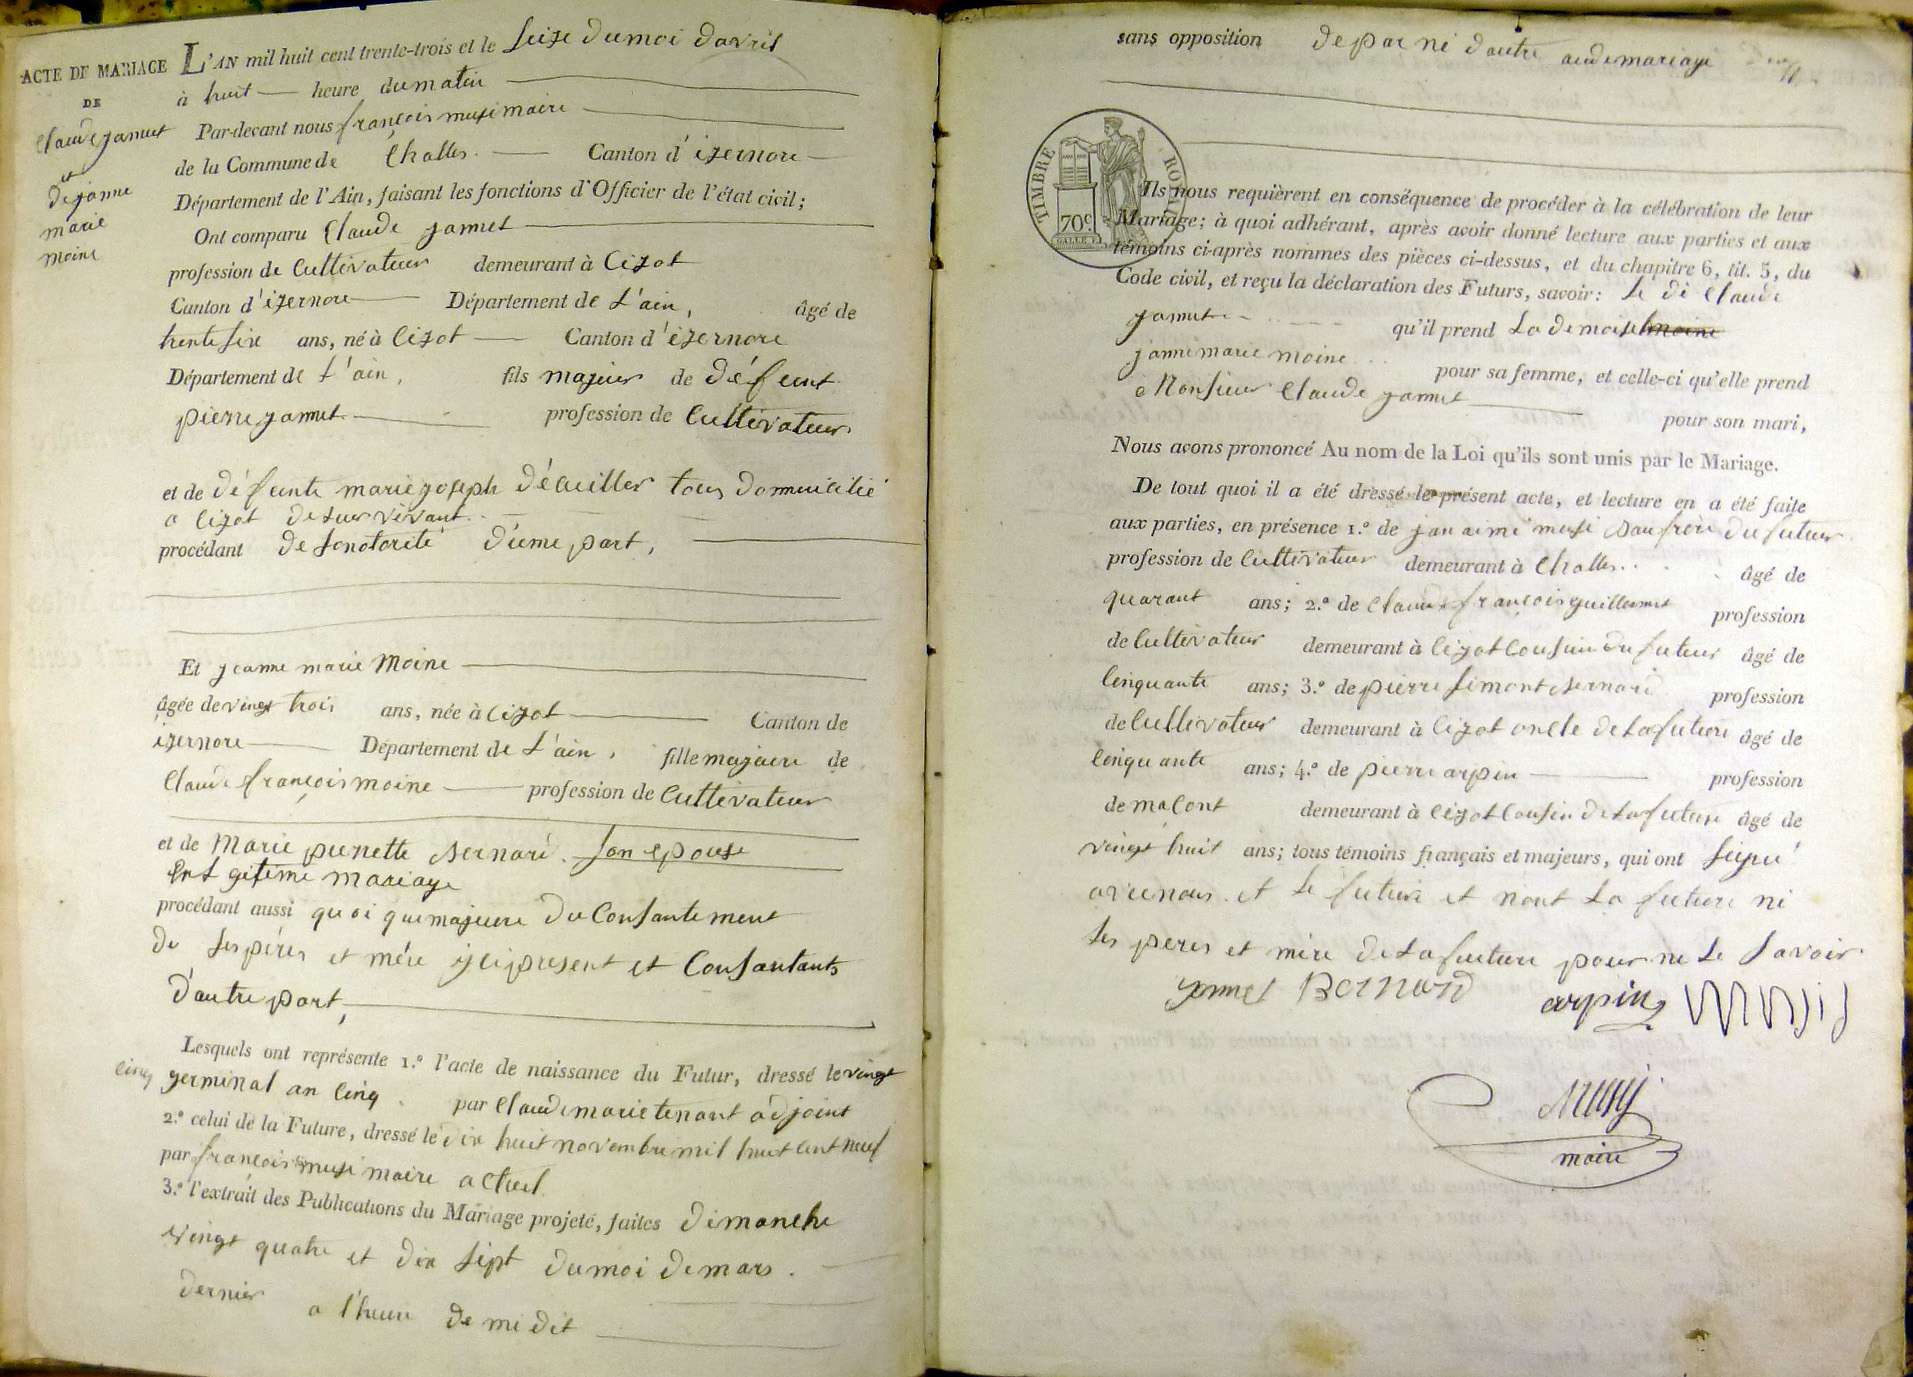 ACTE DE MARIAGE
DE
Claude jannet
et
de janne
marie
moine
L'AN mil huit cent trente-trois et le seize du moi davril
à huit heure du matin
Par-devant nous françois musi maire
de la Commune de Challes. Canton d'izernore
Département de l'Ain, faisant les fonctions d'Officier de l'état civil;
Ont comparu Claude jannet
profession de Cultivateur demeurant à Cizot
Canton d'izernore Département de L'ain, âgé de
trente six ans, né à Cizot Canton d'izernore
Département de L'ain, fils majeur de défeunt
pierre jannet profession de Cultivateur
et de défeunte marie joseph Décuiller tous domicilié
a Cizot de leur vivant.
procédant de sonotorité d'eune part,
Et jeanne marie Moine
âgée de vingt trois ans, née à Cizot Canton de
izernore Département de L'ain, fille majeure de
Claude françois moine profession de Cultivateur
et de Marie pierrette Bernard. son epouse
en L gitime mariage
procédant aussi quoi que majeure du Consantement
de ses péres et mére ici present et Consantants
d'autre part,
Lesquels ont représenté 1.º l'acte de naissance du Futur, dressé le vingt
cinq germinal an Cinq. par Claude marie tenant adjoint
2.º celui de la Future, dressé le dix huit novembre mil huit cent neuf
par françois musi maire actuel
3.º l'extrait des Publications du Mariage projeté, faites dimanche
vingt quatre et dix sept du moi de mars.
dernier a l'heure de mi dit
sans opposition de par ni dautre au de mariage
TIMBRE ROYAL
70c
Ils nous requièrent en conséquence de procéder à la célébration de leur
Mariage; à quoi adhérant, après avoir donné lecture aux parties et aux
témoins ci-après nommés des pièces ci-dessus, et du chapitre 6, tit. 5, du
Code civil, et reçu la déclaration des Futurs, savoir: Le di Claude
jannet qu'il prend La demoisel moine
janne marie moine pour sa femme, et celle-ci qu'elle prend
Monsieur Claude jannet pour son mari,
Nous avons prononcé Au nom de la Loi qu'ils sont unis par le Mariage.
De tout quoi il a été dressé le présent acte, et lecture en a été faite
aux parties, en présence 1.º de jan aimé musi Baufrere du futeur
profession de Cultivateur demeurant à Challes. âgé de
quarant ans; 2.º de Claude françois guillermet profession
de Cultivateur demeurant à Cizot Cousin du futeur âgé de
Cinquante ans; 3.º de pierre simont Bernard profession
de Cultivateur demeurant à Cizot oncle de La future âgé de
Cinquante ans; 4.º de pierre arpin profession
de maCont demeurant à Cizot Cousin de La future âgé de
vingt huit ans; tous témoins français et majeurs, qui ont signé
avec nous. et Le future et nont La future ni
Les peres et mère de La future pour ne Le savoir
jannet Bernard arpin musij
Musij
maire